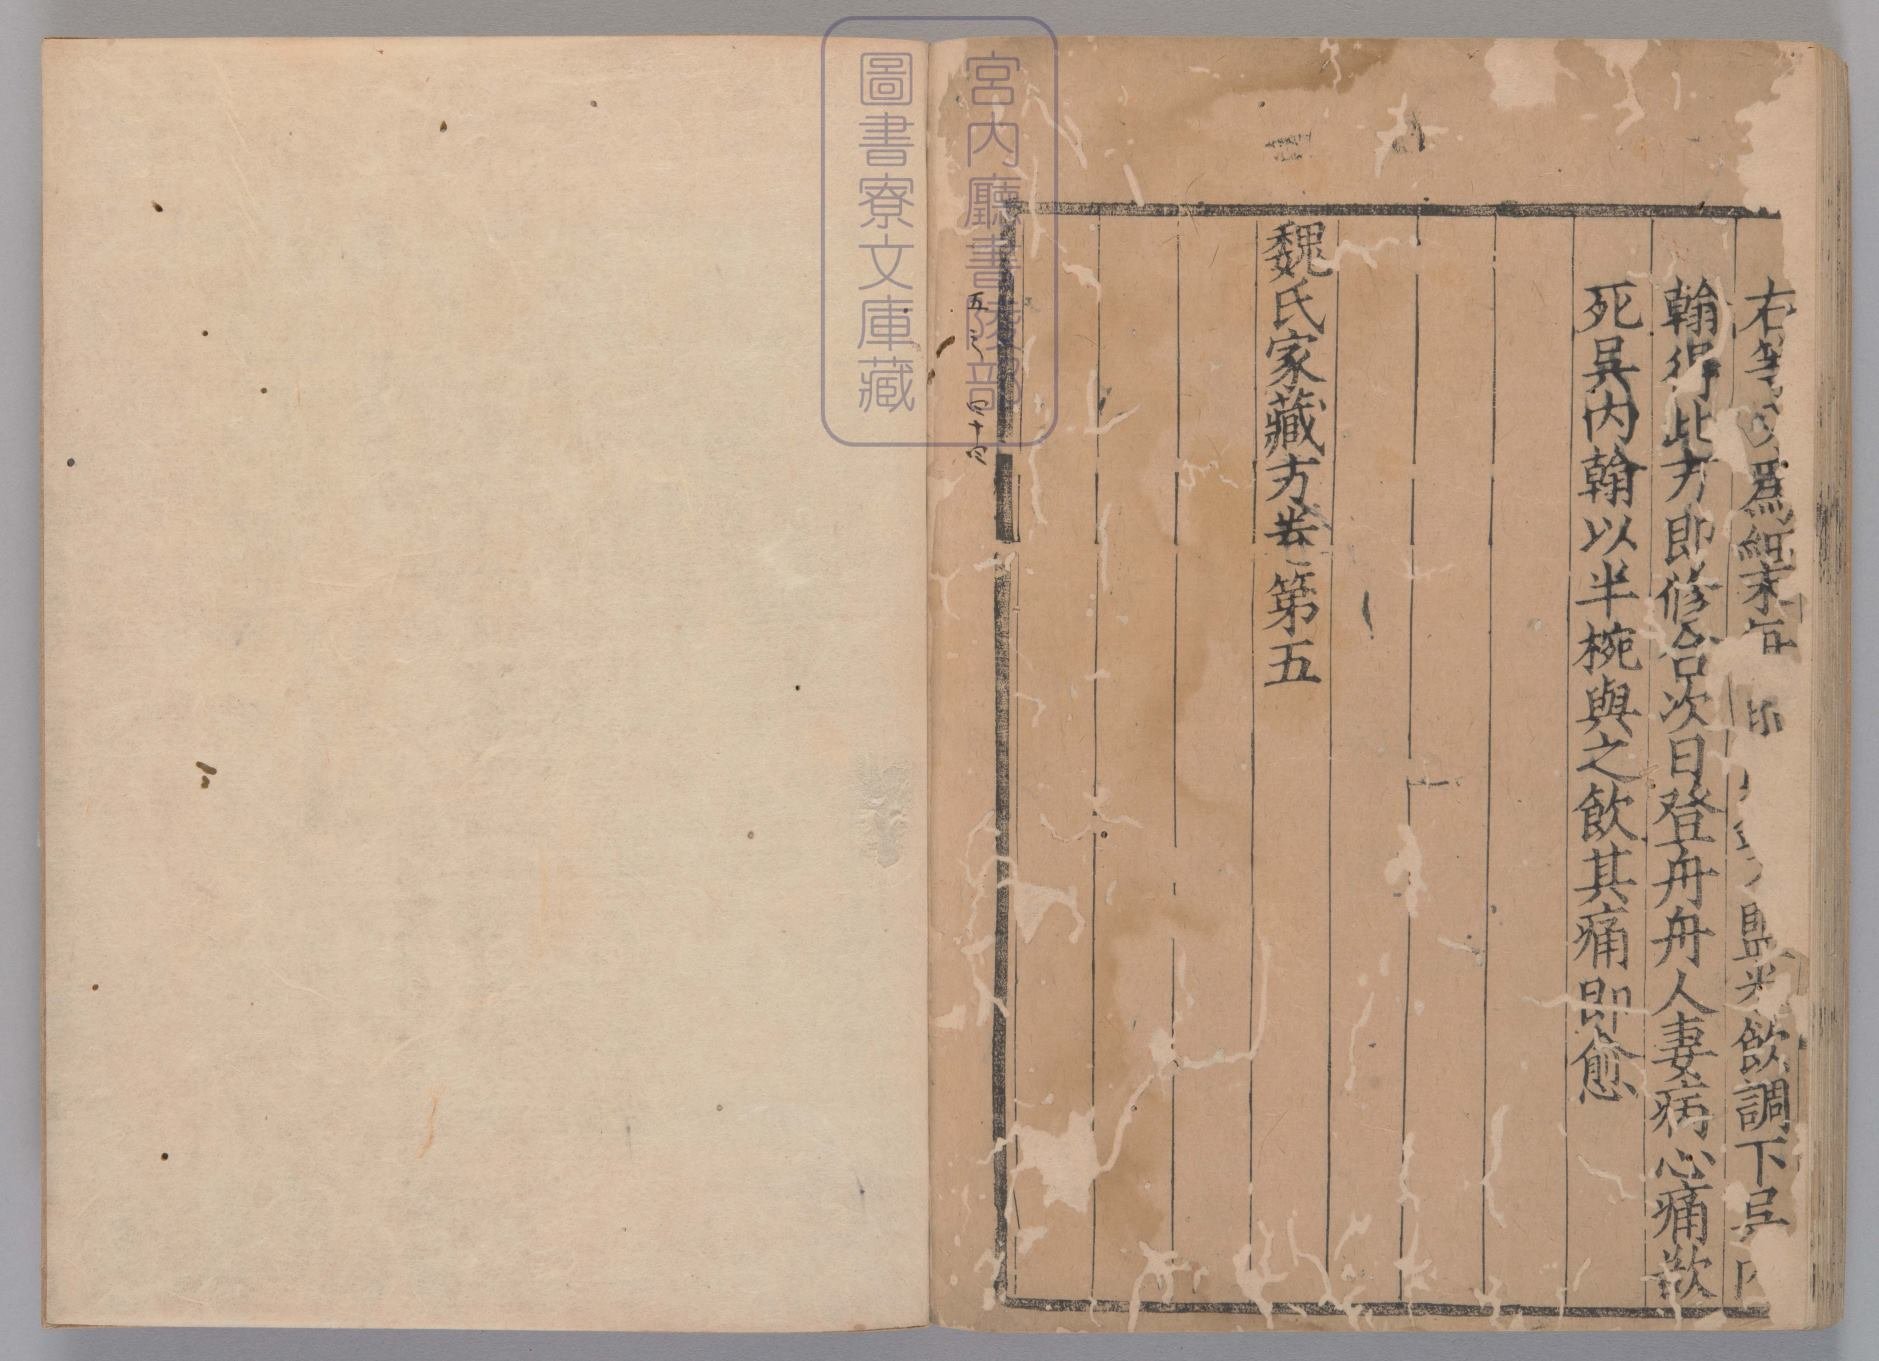 右等分爲細末每 鹽米飲調下吳內
翰得此方即修合次日登舟舟人妻病心痛欲
死吳内翰以半椀與之飲其痛即愈
魏氏家藏方卷第五
五之 四十四
宮内廳書陵部
圖書寮文庫藏